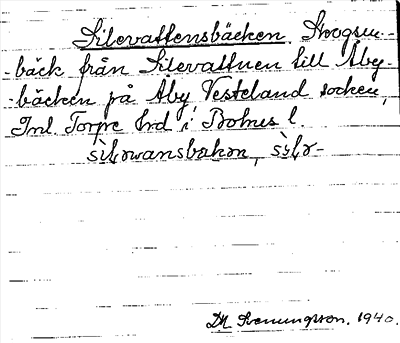 Silevattensbäcken. Skogsm-
-bäck från Silevattnen till Åby-
-bäcken på Åby, Vesteland socken,
Inl. Torpe hrd i Bohus l.
sìlǝwansbɛkǝn, sìlǝ-
DM Svenungsson. 1940.